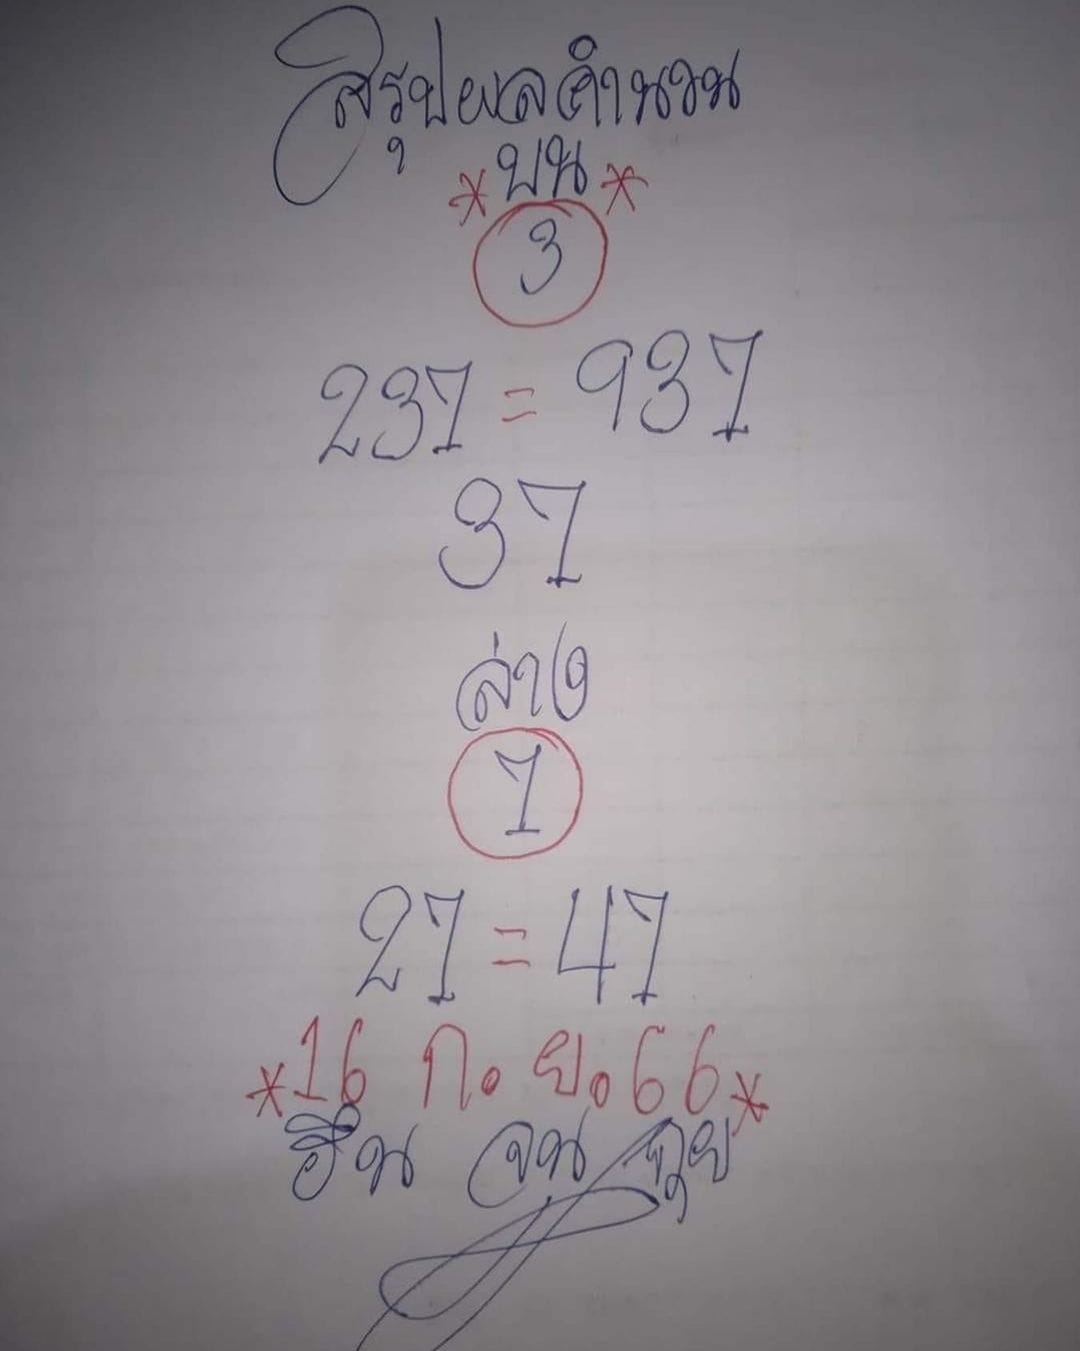 สรุปผลคำนวน
* บน *
3
237 = 937
37
ล่าง
7
27 = 47
*16 ก. ย. 66*
ฮึน จน